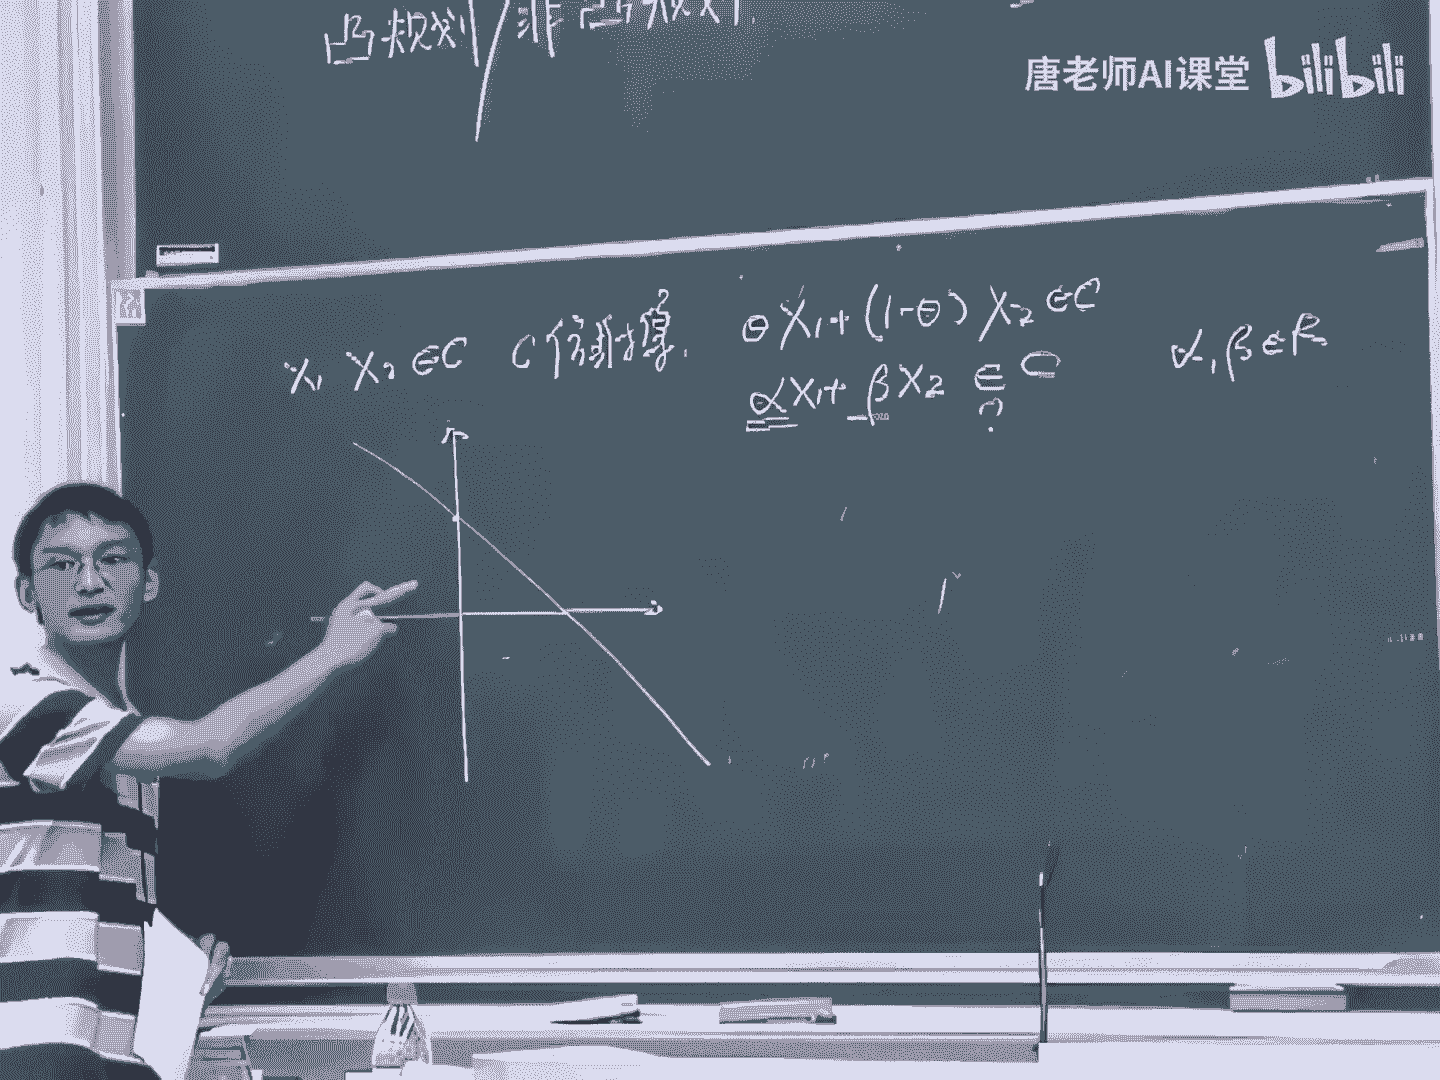 凸规划/非凸规划.
唐老师AI课堂 bilibili
X₁ X₂ ∈C C仿射集? θX₁+(1-θ)X₂ ∈C α,β∈R
αX₁+βX₂ ∈ C
?